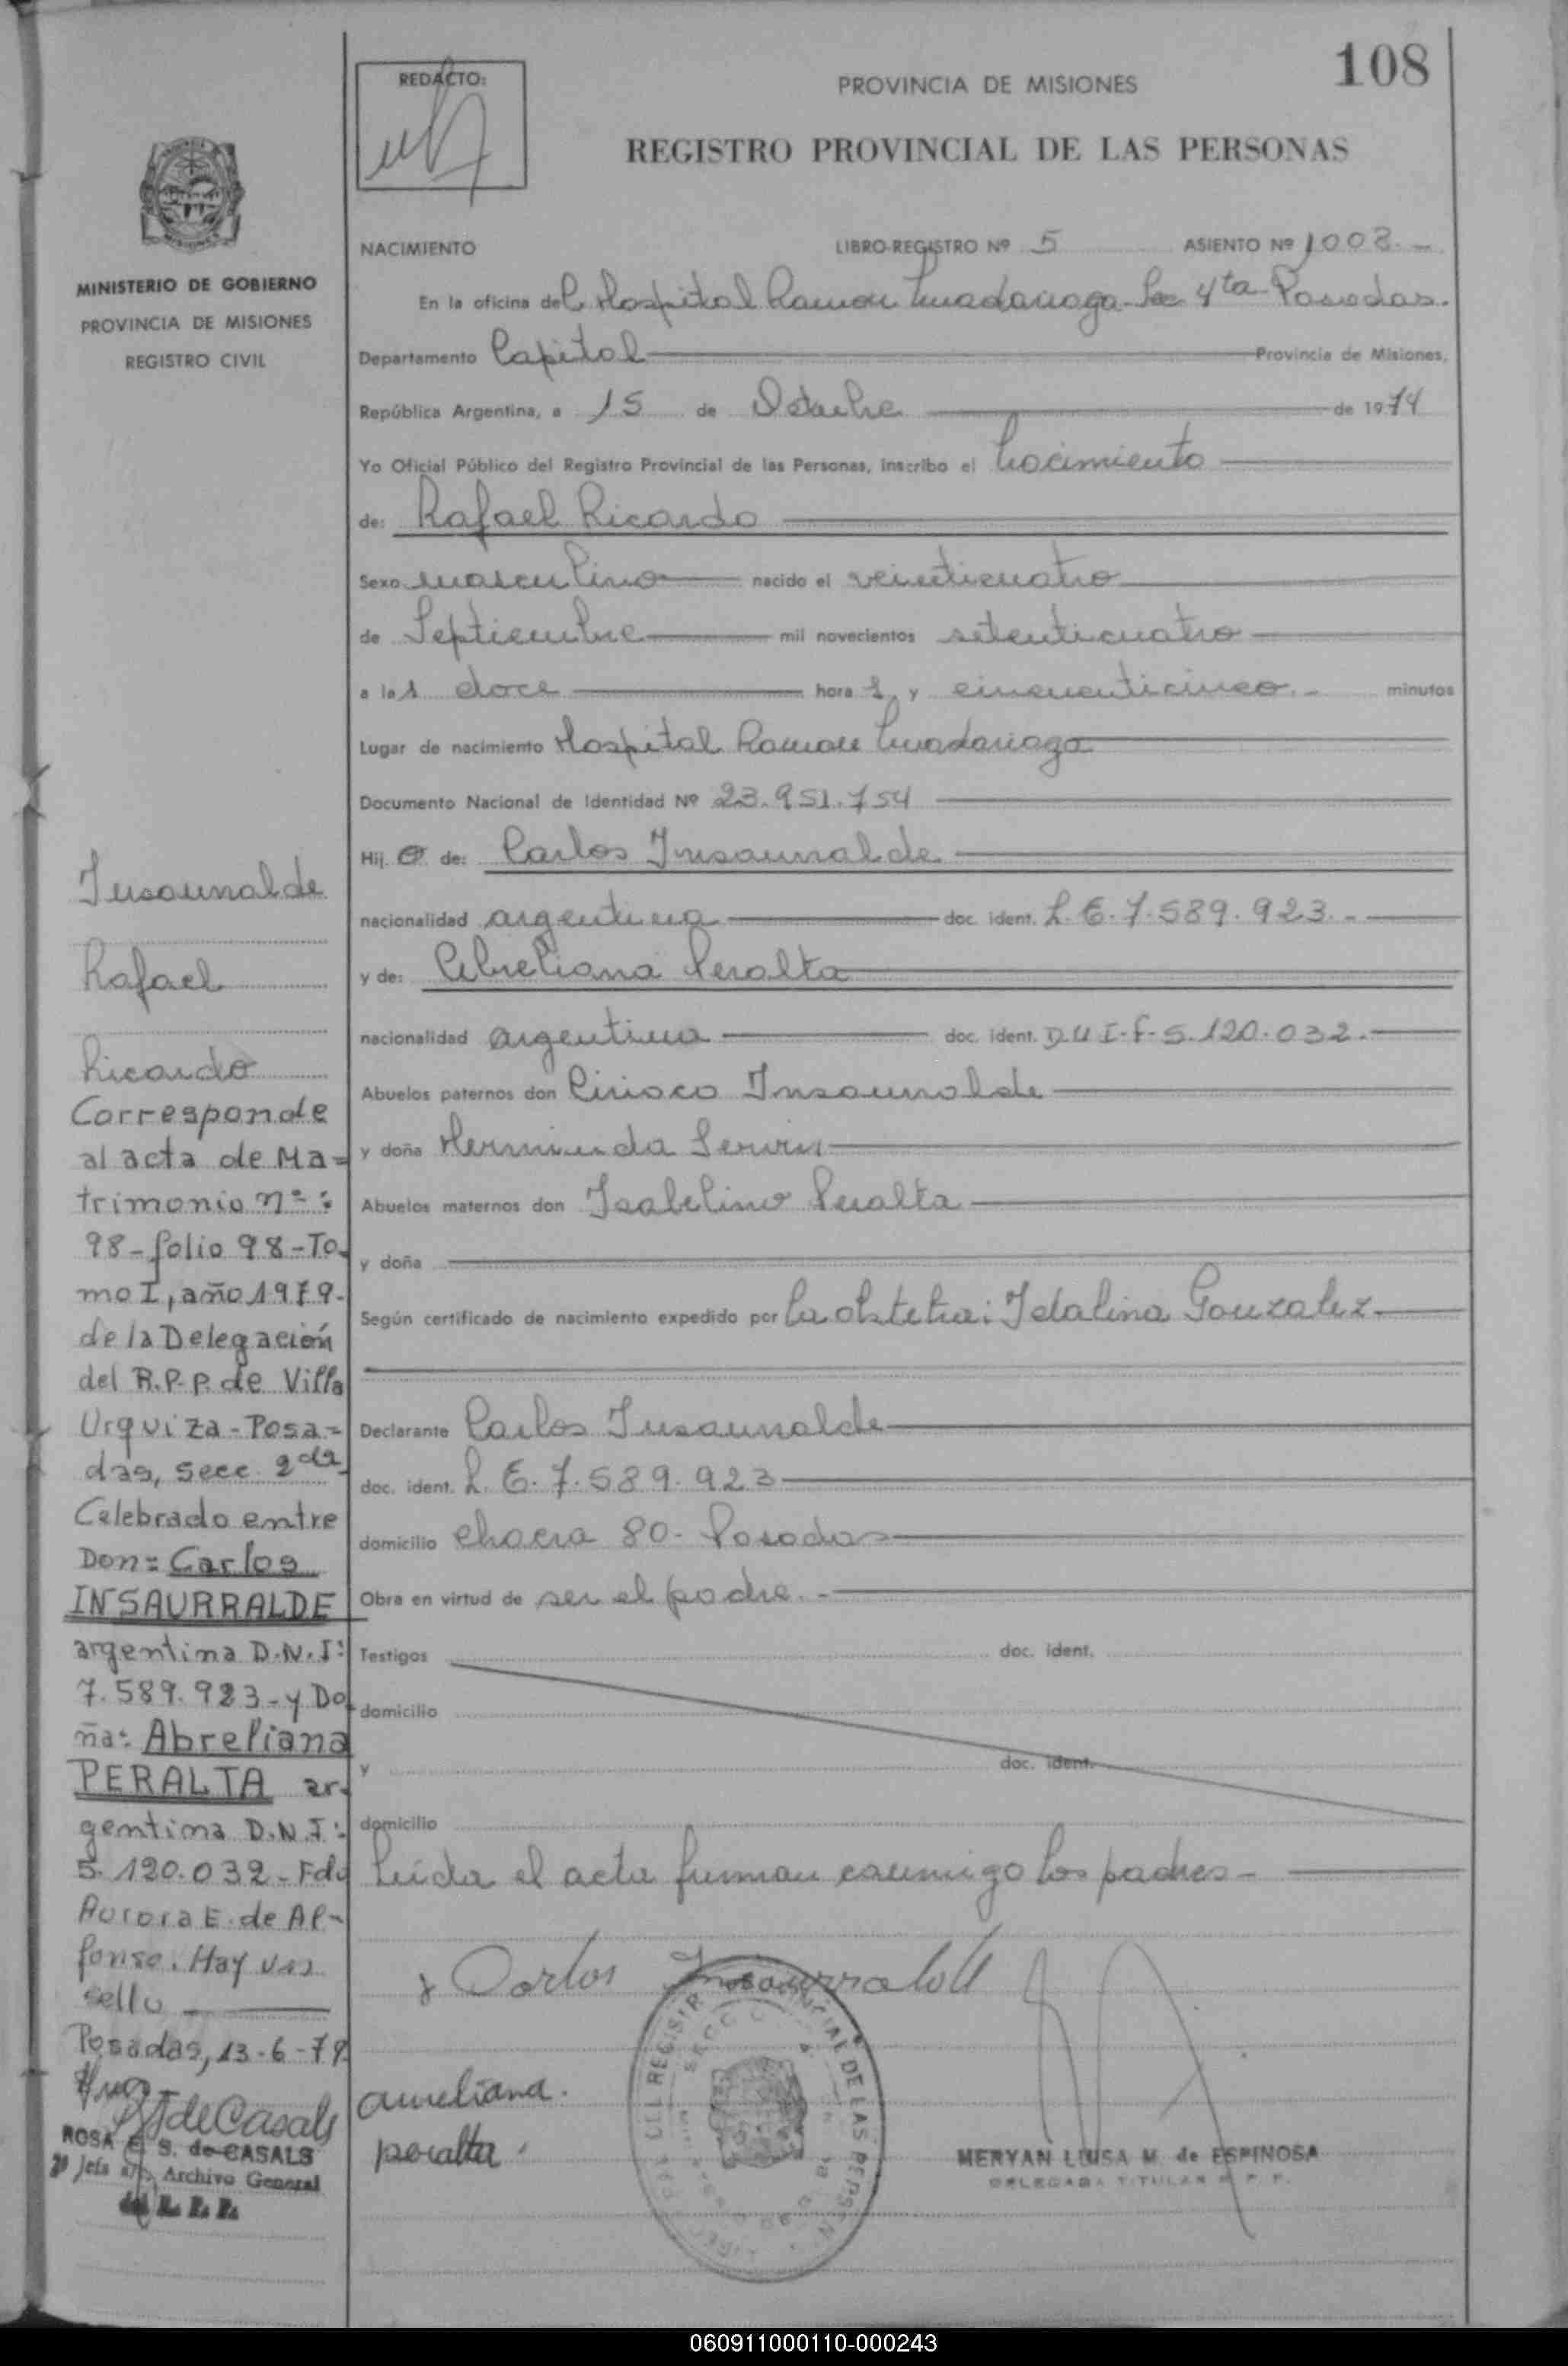 108
REDACTO:
PROVINCIA DE MISIONES
REGISTRO PROVINCIAL DE LAS PERSONAS
MINISTERIO DE GOBIERNO
PROVINCIA DE MISIONES
REGISTRO CIVIL
NACIMIENTO LIBRO-REGISTRO Nº 5 ASIENTO Nº 1002.-
En la oficina del Hospital Ramon Madariaga - Sec 4ta - Posadas.
Departamento Capital Provincia de Misiones,
República Argentina, a 15 de Octubre de 1974
Yo Oficial Público del Registro Provincial de las Personas, inscribo el nacimiento
de: Rafael Ricardo
Sexo masculino nacido el veinticuatro
de Septiembre mil novecientos setenticuatro
a las doce horas y cincuenticinco.- minutos
Lugar de nacimiento Hospital Ramon Madariaga
Documento Nacional de Identidad Nº 23.951.754
Hijo de: Carlos Insaurralde
nacionalidad argentina doc. ident. L.E. 7.589.923.-
y de: Abreliana Peralta
nacionalidad argentina doc. ident. DUI-F-5.120.032.-
Abuelos paternos don Ciriaco Insaurralde
y doña Herminda Servin
Abuelos maternos don Isabelino Peralta
y doña
Según certificado de nacimiento expedido por la obstetra: Idalina Gonzalez
Declarante Carlos Insaurralde
doc. ident. L.E. 7.589.923
domicilio chacra 80 - Posadas
Obra en virtud de ser el padre.-
Testigos doc. ident.
domicilio
y doc. ident.
domicilio
Leída el acta firman conmigo los padres-
Carlos Insaurralde
aureliana.
peralta.
MERYAN LUISA M. de ESPINOSA
DELEGADA TITULAR R. P. P.
Insaurralde
Rafael
Ricardo
Corresponde
al acta de Ma=
trimonio nº:
98-folio 98-To-
mo I, año 1979-
de la Delegación
del R.P.P. de Villa
Urquiza-Posa=
das, secc. 2da
Celebrado entre
Don= Carlos
INSAURRALDE
argentina D.N.I:
7.589.923-y Do
ña: Abreliana
PERALTA ar-
gentina D.N.I:
5.120.032-Fdo
Aurora E. de Al-
fonso. Hay un
sello
Posadas, 13-6-79
RSdeCasals
ROSA E. S. de CASALS
2º Jefa Archivo General
del R. P. P.
060911000110-000243